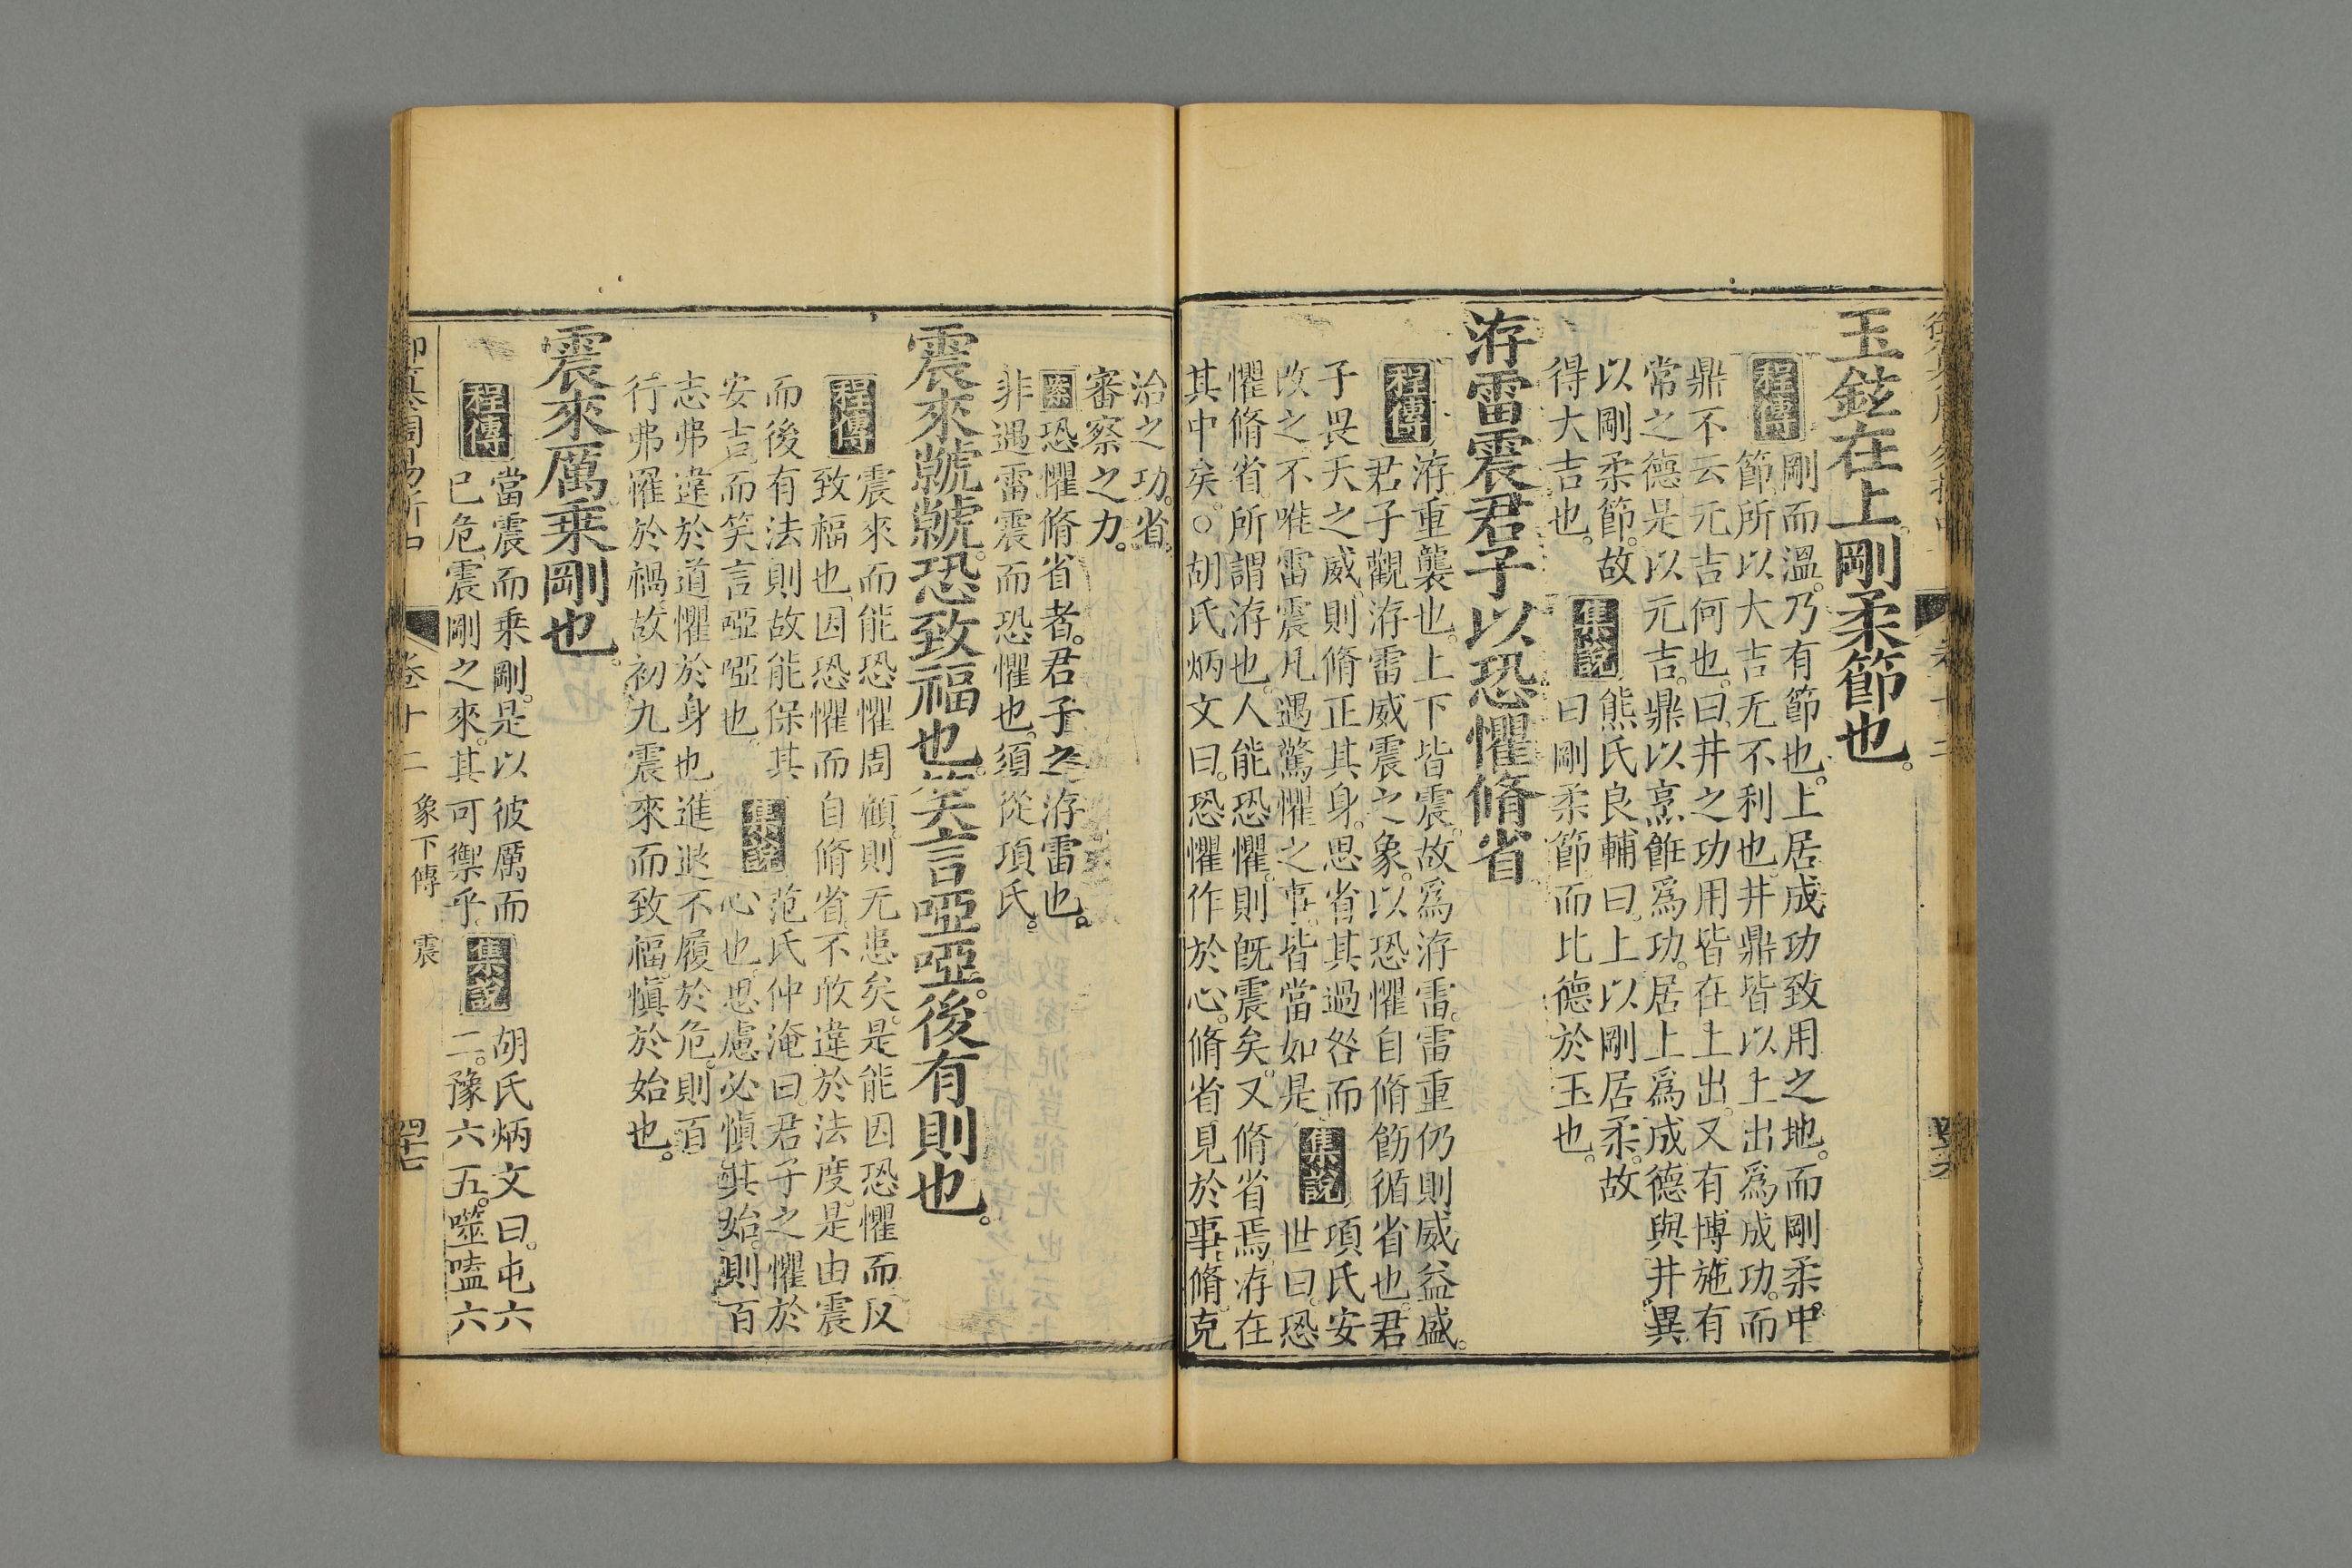 玉鉉在上。剛柔節也。
程傳
剛而溫。乃有節也。上居成功致用之地。而剛柔中
節所以大吉无不利也。井鼎皆以上出爲成功。而
鼎不云元吉何也。曰井之功用皆在上出。又有博施有
常之德是以元吉。鼎以烹飪爲功。居上爲成德與井異
以剛柔節。故
得大吉也。
集說
熊氏良輔曰。上以剛居柔。故
曰剛柔節而比德於玉也。
洊雷震君子以恐懼脩省
程傳
洊重襲也。上下皆震。故爲洊雷。雷重仍則威益盛。
君子觀洊雷威震之象。以恐懼自脩飭循省也。君
子畏天之威。則脩正其身。思省其過咎而
改之不唯雷震凡遇驚懼之事。皆當如是
集說
項氏安
世曰。恐
懼脩省所謂洊也。人能恐懼。則旣震矣。又脩省焉洊在
其中矣。○胡氏炳文曰。恐懼作於心。脩省見於事。脩。克
治之功。省。
審察之力。
案恐懼脩省者。君子之洊雷也。
非遇雷震而恐懼也。須從項氏。
震來虩虩。恐致福也。笑言啞啞。後有則也。
程傳
震來而能恐懼周顧。則无患矣。是能因恐懼而反
致福也因恐懼而自脩省不敢違於法度。是由震
而後有法則故能保其
安吉而笑言啞啞也。
集說
范氏仲淹曰。君子之懼於
心也。思慮必愼其始。則百
志弗違於道懼於身也進退不履於危。則百
行弗罹於禍。故初九震來而致福。愼於始也。
震來厲乗剛也。
程傳
當震而乗剛。是以彼厲而
已危。震剛之來。其可禦乎
集說
胡氏炳文曰。屯六
二。豫六五。噬嗑六
卷十二
象下傳
震
四十七